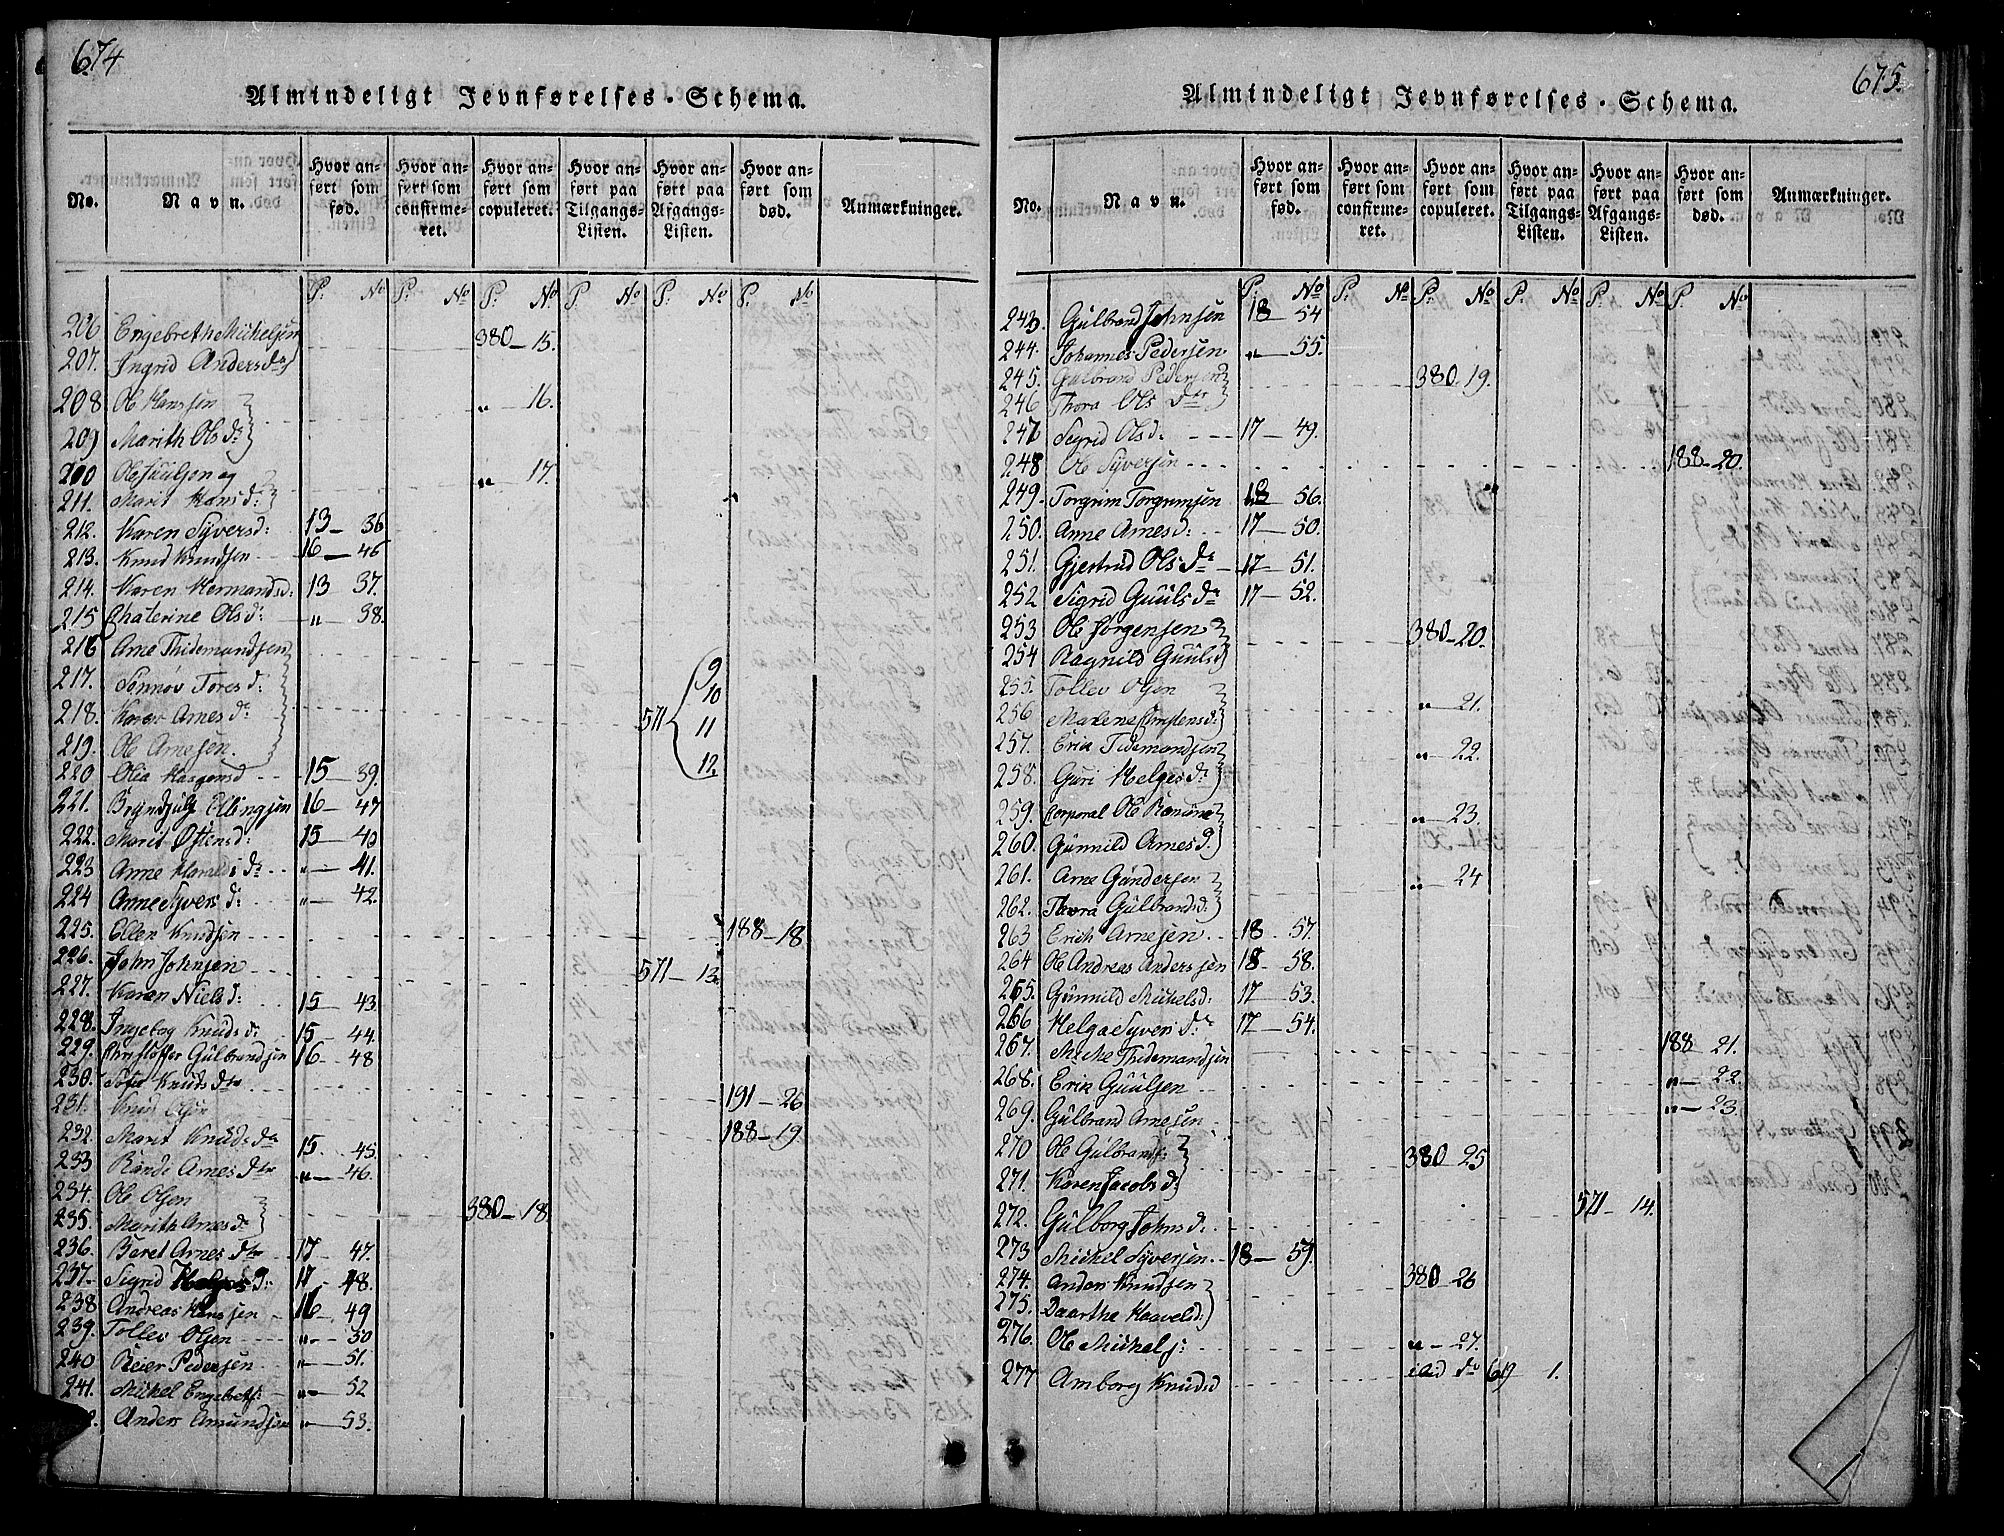 674
Almindeligt Jevnførelses-Schema.
No.
Navn.
Hvor anført som fød.
Hvor anført som confirmeret.
Hvor anført som copuleret.
Hvor anført paa Tilgangs-Listen.
Hvor anført paa Afgangs-Listen.
Hvor anført som død.
Anmærkninger.
P. No P. No P. No P. No P. No P. No
206 Engebreth Michelsen
207. Ingrid Andersdr 380 - 15.
208 Ole Hanssen
209 Marith Olsdr „ 16.
200 Ole og
211. Marit Hansdr „ 17.
212. Karen Syversd: 13 - 36
213. Knud Knudsen 16 - 46
214. Karen Hermandsd: 13 37.
215 Chaterine Olsd: „ 38.
216 Arne Thidemandsen
217. Sønnøv Toresd: 9
218. Karen Arnesdr 571 10 11
219. Ole Arnesen 12.
220 Olia Haagensd 15 - 39.
221. Bryndjulf Ellingsen 16 - 47
222. Marit Østensd: 15 - 40
223 Anne Haralds dr „ - 41.
224 Anne Syvers d: „ - 42.
225. Ellen Knudsen 188 - 18
226. John Johnsen 571 - 13.
227. Karen Nielsd: 15 - 43.
228. Ingeborg Knuds dr 15 - 44.
229. Christoffer Gulbrandsen 16 - 48
230. Knuds dtr 191 - 26
231. Knud Olsen 188 - 19
232. Marit Knudsdr 15. 45.
233 Rande Arnes dtr „ - 46.
234. Ole Olsen
235. Marith Arnesdr 380 - 18.
236. Beret Arnes dtr 17 - 47.
237. Sigrid Helgesd: 17 - 48.
238 Andreas Hanssen 16 - 49
239. Tollev Olsen „ - 50
240 Reier Pedersen „ - 51.
241. Michel Engebrets: „ - 52
Anders Amundsen „ - 53.
675.
Almindeligt Jevnførelses-Schema.
No.
Navn.
Hvor anført som fød.
Hvor anført som confirmeret.
Hvor anført som copuleret.
Hvor anført paa Tilgangs-Listen.
Hvor anført paa Afgangs-Listen.
Hvor anført som død.
Anmærkninger.
P. No P. No P. No P. No P. No P. No
243. Gulbrand Johnsen 18 - 54
244. Johannes Pedersen „ - 55.
245. Gulbrand Pedersen 380. 19.
246 Thora Ols dtr
247 Segrid Olsd: 17 - 49.
248 Ole Syversen 188 - 20.
249. Torgrim Torgrimsen 18 - 56.
250. Anne Arnesd: 17 - 50.
251. Gjertrud Olsdr 17 - 51.
252 Sigrid Guuls dr 17 - 52.
253 Ole Jørgensen 380 - 20.
254 Ragnild Guulsd
255. Tollev Olsen
256 Marlene Christensd: „ - 21.
257. Erik Tidemandsen „ - 22.
258. Guri Helgesdr
259. Corporal Ole „ - 23.
260. Gunnild Arnesd.
261. Arne Gundersen „ - 24
262. Thora Gulbrandsd:
263 Erich Arnesen 18 - 57.
264 Ole Andreas Anderssen 18 - 58.
265. Gunnild Michelsd: 17 - 53.
266 Helga Syversdr 17 - 54.
267. Thidemandsen 188 - 21.
268. Erik Guulsen „ - 22.
269. Gulbrand Arnesen „ - 23.
270 Ole Gulbrands: 380 - 25
271. Karen Jacobsd
272. Gulborg Johnsd: 571 - 14.
273 Michel Syversen 18 - 59.
274. Anders Knudsen 380 - 26
275. Daarthe Haavelsd:
276. Ole Michels: „ - 27.
277 Amborg Knudsd 619 1.